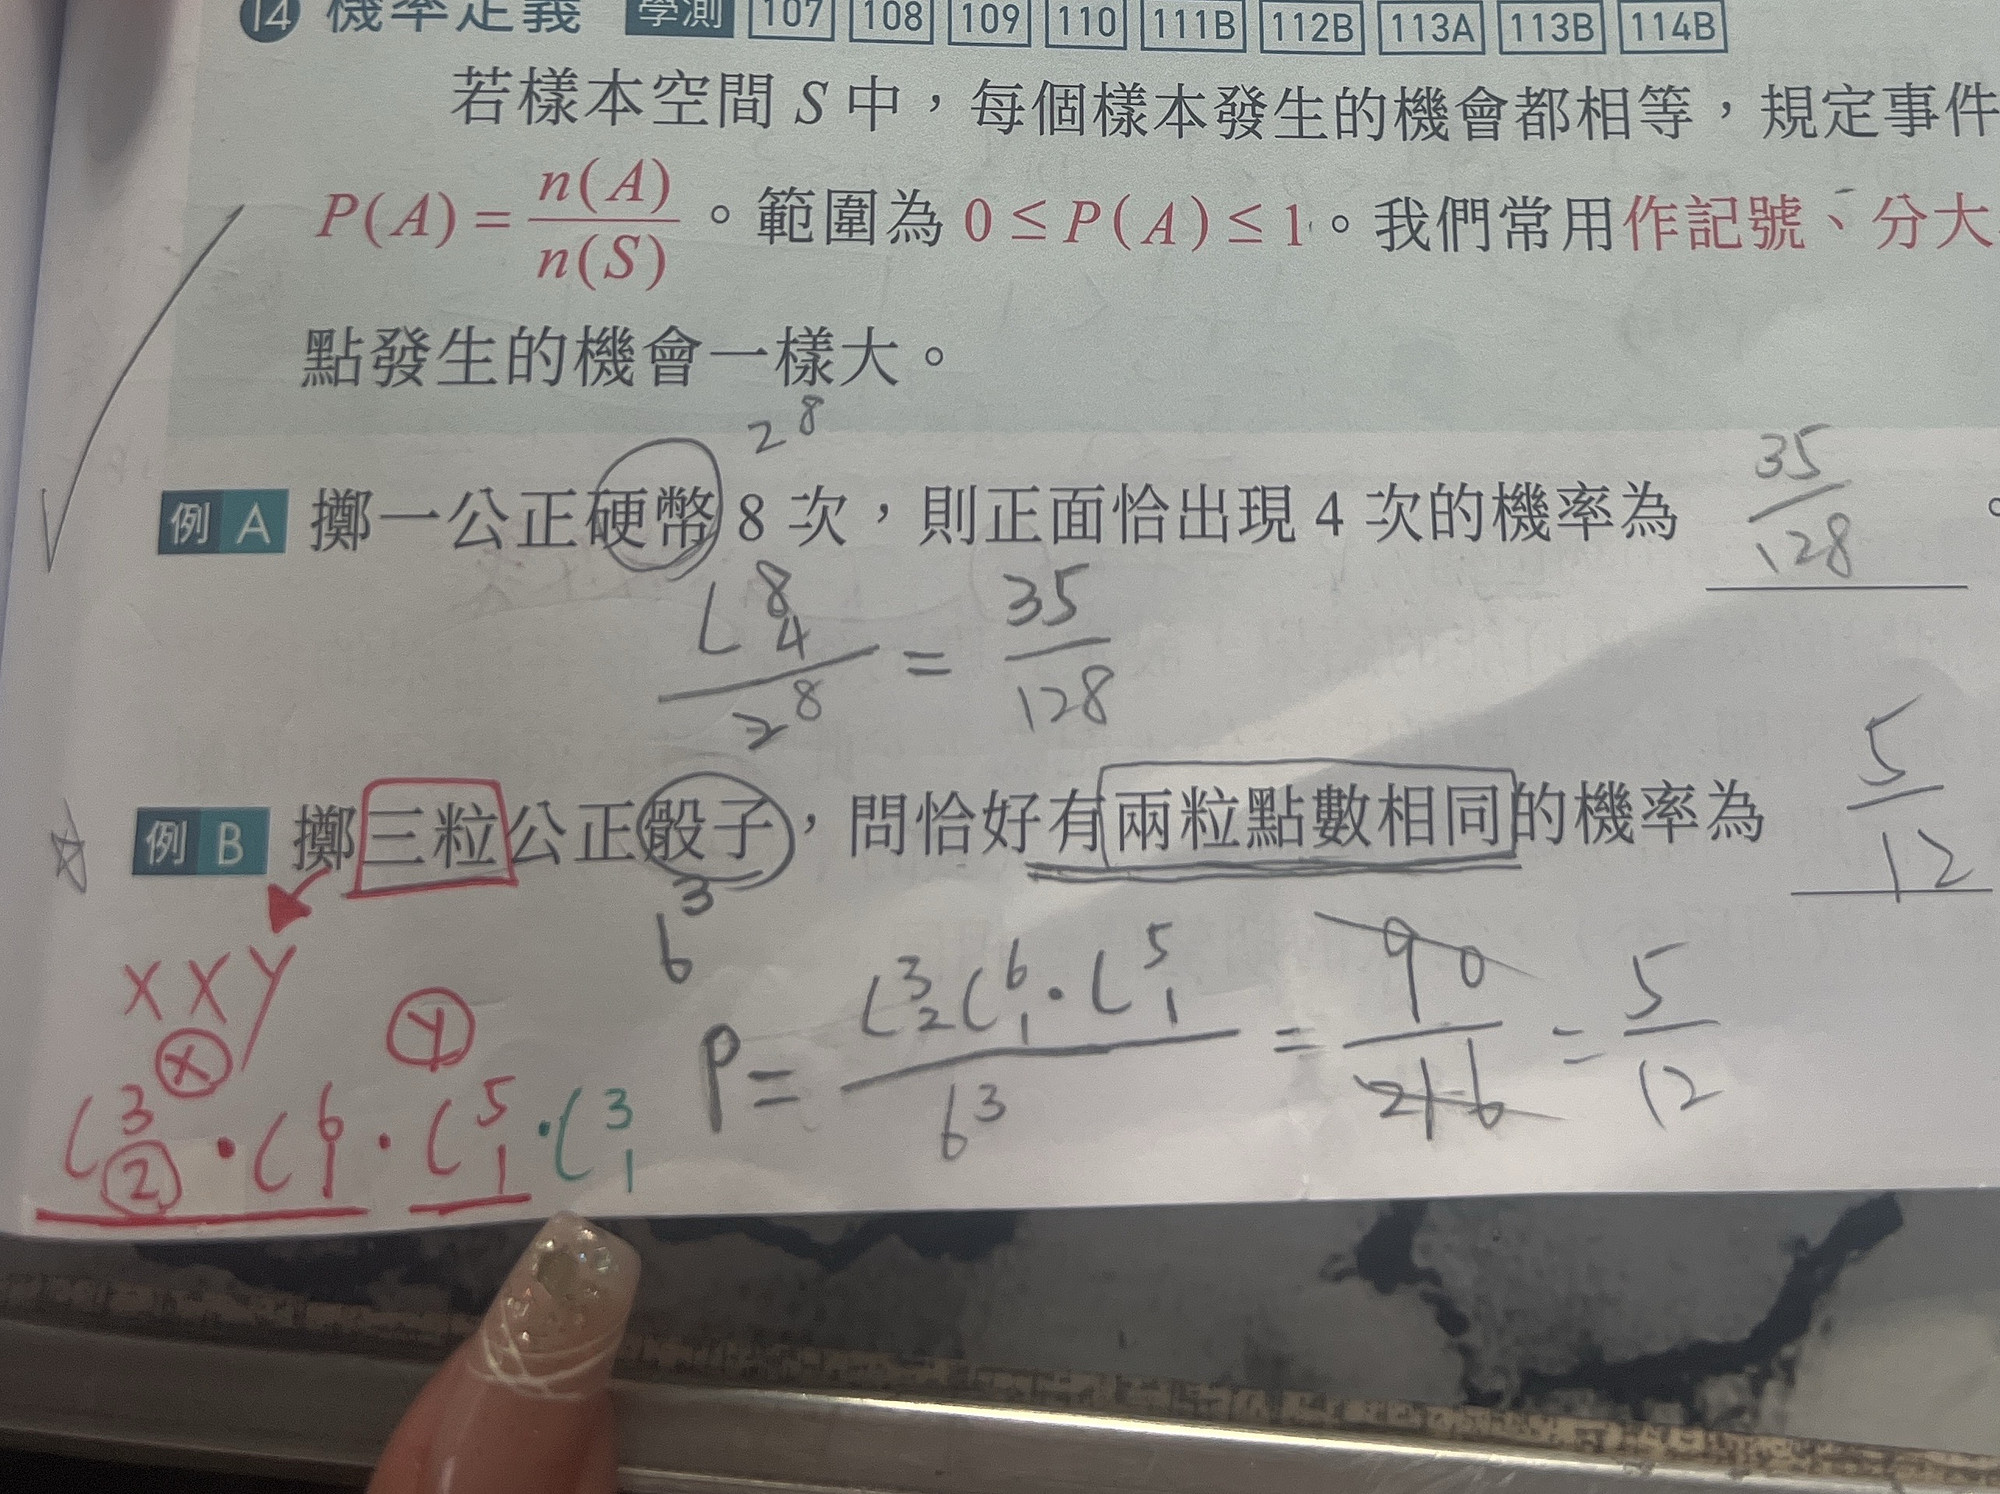 14 機率定義 學測 107 108 109 110 111B 112B 113A 113B 114B
若樣本空間 S 中，每個樣本發生的機會都相等，規定事件
P(A) = n(A)/n(S)。範圍為 0 ≤ P(A) ≤ 1。我們常用作記號、分大
點發生的機會一樣大。
2^8
例 A 擲一公正硬幣 8 次，則正面恰出現 4 次的機率為 35/128 。
C^8_4 / 2^8 = 35/128
例 B 擲三粒公正骰子，問恰好有兩粒點數相同的機率為 5/12
6^3
x x y
P = C^3_2 C^6_1 · C^5_1 / 6^3 = 90/216 = 5/12
x y
C^3_2 · C^6_1 · C^5_1 · C^3_1